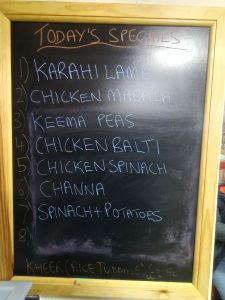 TODAY'S SPECIALS
1) KARAHI LAMB
2) CHICKEN MASALA
3) KEEMA PEAS
4) CHICKEN BALTI
5) CHICKEN SPINACH
6) CHANNA
7) SPINACH + POTATOES
8)
KHEER (RICE PUDDING)